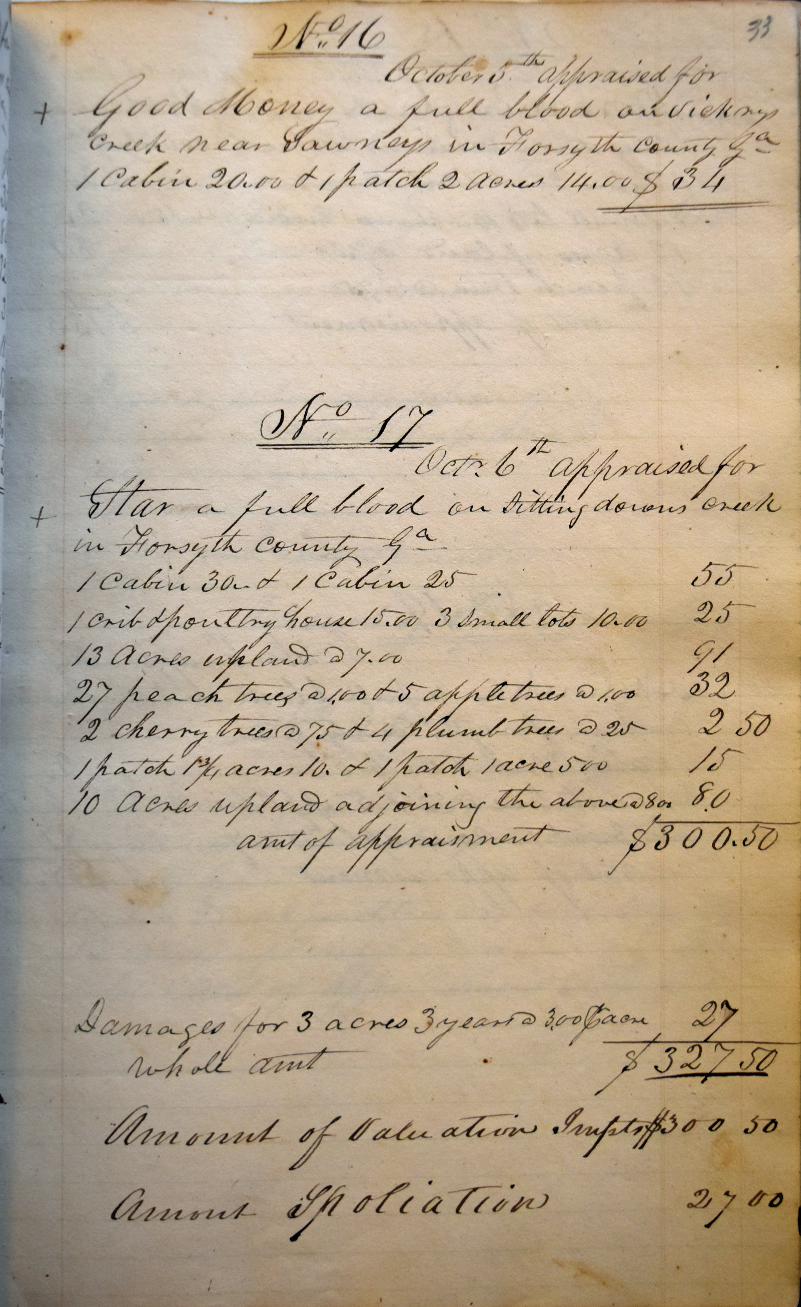 33
No. 16
October 5th appraised for
+ Good Money a full blood on Vickrys
creek near Sawneys in Forsyth county Ga
1 Cabin 20.00 & 1 patch 2 acres 14.00 $ 34
No. 17
Octr. 6th appraised for
+ Star a full blood on Sittingdowns creek
in Forsyth county Ga
1 Cabin 30. & 1 Cabin 25 55
1 crib & poultry house 15.00 3 Small lots 10.00 25
13 Acres upland @ 7.00 91
27 peach trees @ 1,00 & 5 apple trees @ 1,00 32
2 cherry trees @ 75 & 4 plumb trees @ 25 2 50
1 patch 1 3/4 acres 10. & 1 patch 1 acre 500 15
10 Acres upland adjoining the above @ 800 80
amt of appraisment $300.50
Damages for 3 acres 3 years @ 3,00 ⅌ acre 27
whole amt $ 327 50
Amount of Valuation Impts $300 50
Amount Spoliation 27 00